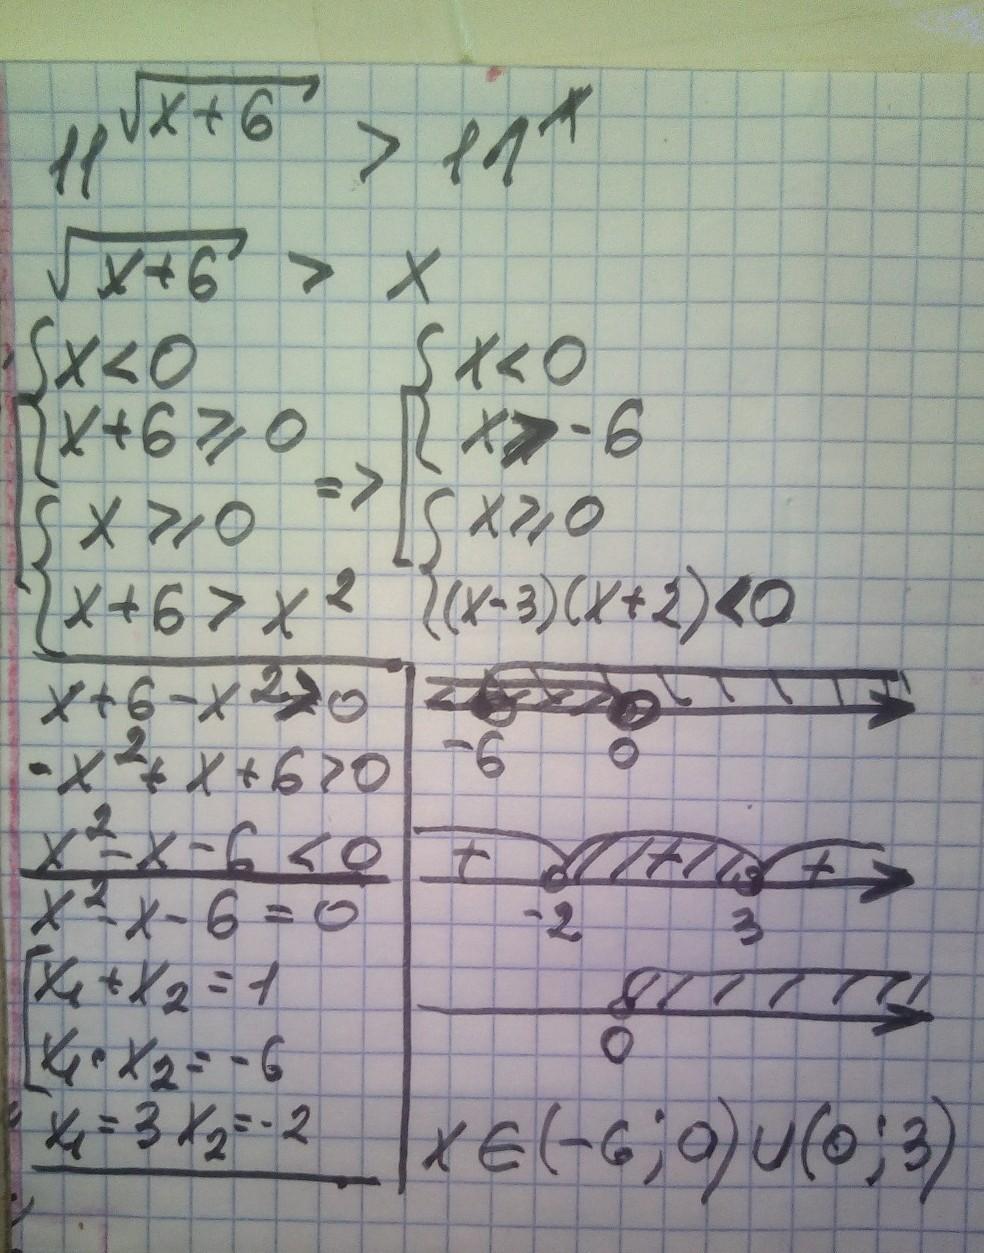 11^√(x+6) > 11^x
√(x+6) > x
{ x < 0
{ x + 6 ⩾ 0
{ x ⩾ 0
{ x + 6 > x²
=>
{ x < 0
{ x ⩾ -6
{ x ⩾ 0
{ (x-3)(x+2) < 0
x + 6 - x² > 0
-x² + x + 6 > 0
x² - x - 6 < 0
x² - x - 6 = 0
[ x₁ + x₂ = 1
x₁ · x₂ = -6
x₁ = 3 x₂ = -2
-6 0
+ + +
-2 3
0
x ∈ (-6; 0) ∪ (0; 3)